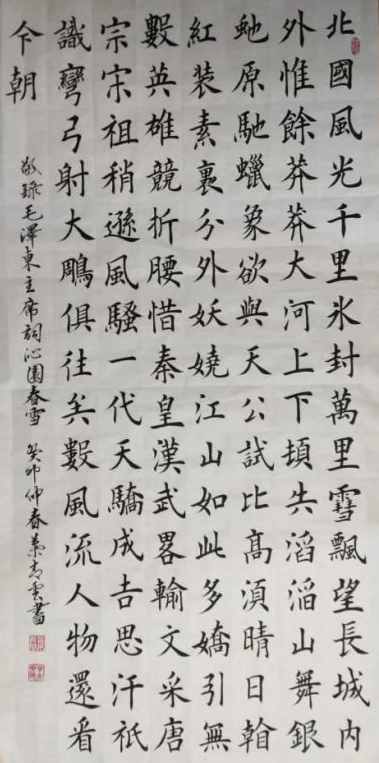 北國風光千里氷封萬里雪飄望長城内
外惟餘莽莽大河上下頓失滔滔山舞銀
虵原馳蠟象欲與天公試比高湏晴日看
紅装素裹分外妖嬈江山如此多嬌引無
數英雄競折腰惜秦皇漢武畧輸文采唐
宗宋祖稍遜風騷一代天驕成吉思汗祇
識彎弓射大鵰俱往矣數風流人物還看
今朝
敬録毛澤東主席詞沁園春雪 癸卯仲春雲書